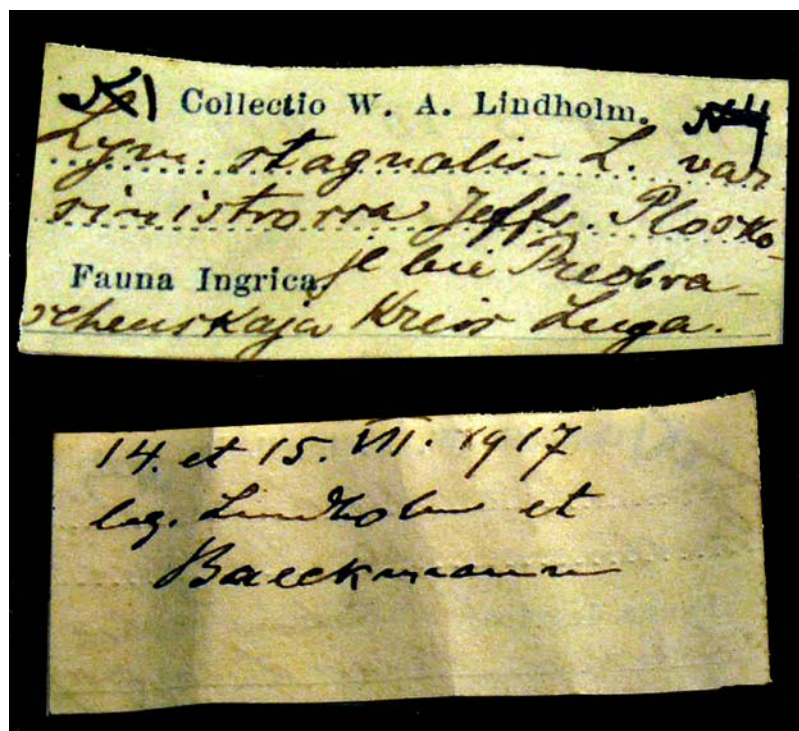 №1 Collectio W. A. Lindholm.
Lym. stagnalis L. var
sinistrorsa Jeffr. Plosko-
je bei Preobra-
Fauna Ingrica.
schenskaja Kreis Luga.
14. et 15. VII. 1917
leg. Lindholm et
Baeckmann